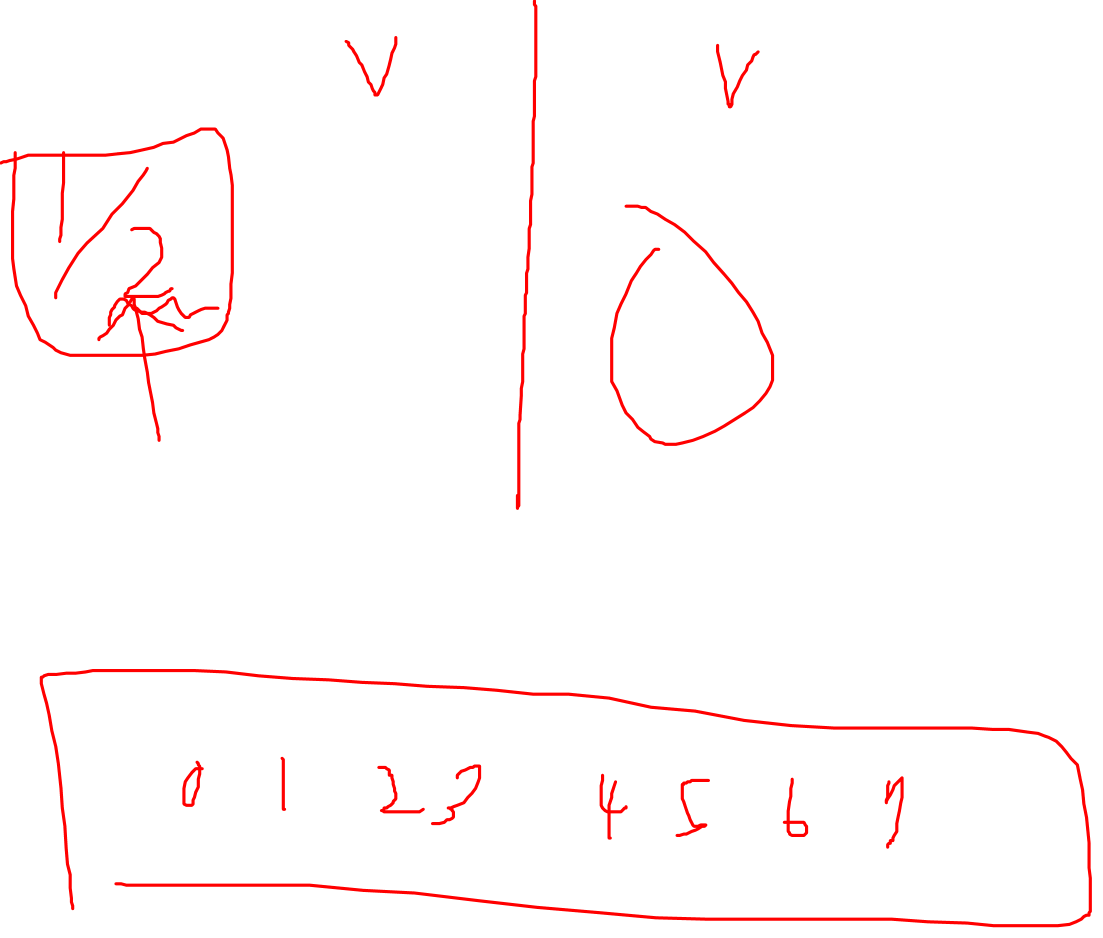 V V
1/2
0 1 2 3 4 5 6 7